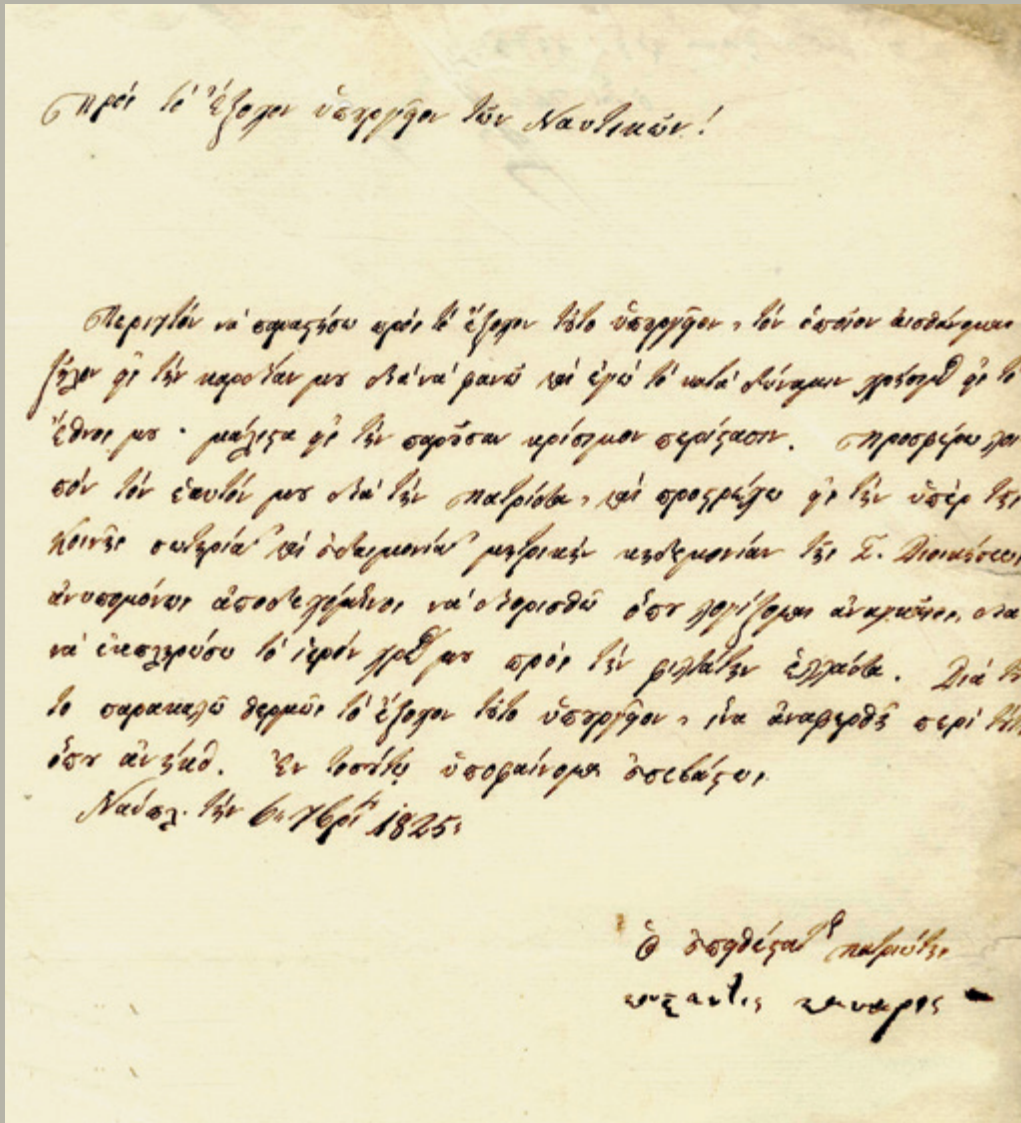 Πρὸς τὸ Ἔξοχον ὑπουργεῖον τῶν Ναυτικῶν!
Περιττὸν νὰ παραστήσω πρὸς τὸ ἔξοχον τοῦτο ὑπουργεῖον, τὸν ὁποῖον αἰσθάνομαι
ζῆλον εἰς τὴν καρδίαν μου διὰ νὰ φανῶ καὶ ἐγὼ τὸ κατὰ δύναμιν χρήσιμος εἰς τὸ
ἔθνος μου· μάλιστα εἰς τὴν παροῦσαν κρίσιμον περίστασιν. Προσφέρω λοι
πὸν τὸν ἑαυτόν μου διὰ τὴν πατρίδα, καὶ προστρέχω εἰς τὴν ὑπὲρ τῆς
κοινῆς σωτηρίας καὶ εὐδαιμονίας μητρικὴν κηδεμονίαν τῆς Σ. Διοικήσεως,
ἀνυπομόνως ἀποδεχόμενος νὰ διορισθῶ ὅπου λογίζομαι ἀναγκαῖος, διὰ
νὰ ἐκπληρώσω τὸ ἱερὸν χρέος μου πρὸς τὴν φιλτάτην ἑλλάδα. Διὰ τοῦ
το παρακαλῶ θερμῶς τὸ ἔξοχον τοῦτο ὑπουργεῖον, ἵνα ἀναφερθῇ περὶ τούτου
ὅπου ἀνήκει. Ἐν τοσούτῳ ὑποφαίνομαι εὐσεβάστως
Ναύπλ. τὴν 6 7βρίου 1825.
Ὁ εὐπειθέστατος πατριώτης
κοσταντις καναρις